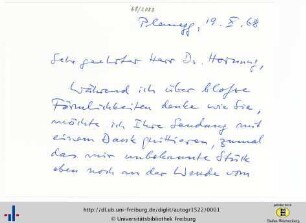 Planegg, 19. X. 68
Sehr geehrter Herr Dr. Hornung,
Während ich über bloße
Förmlichkeiten denke wie Sie,
möchte ich Ihre Sendung mit
einem Dank quittieren, zumal
das mir unbekannte Stück
eben noch an der Wende vom
http://dl.ub.uni-freiburg.de/diglit/autogr1522700001
© Universitätsbibliothek Freiburg